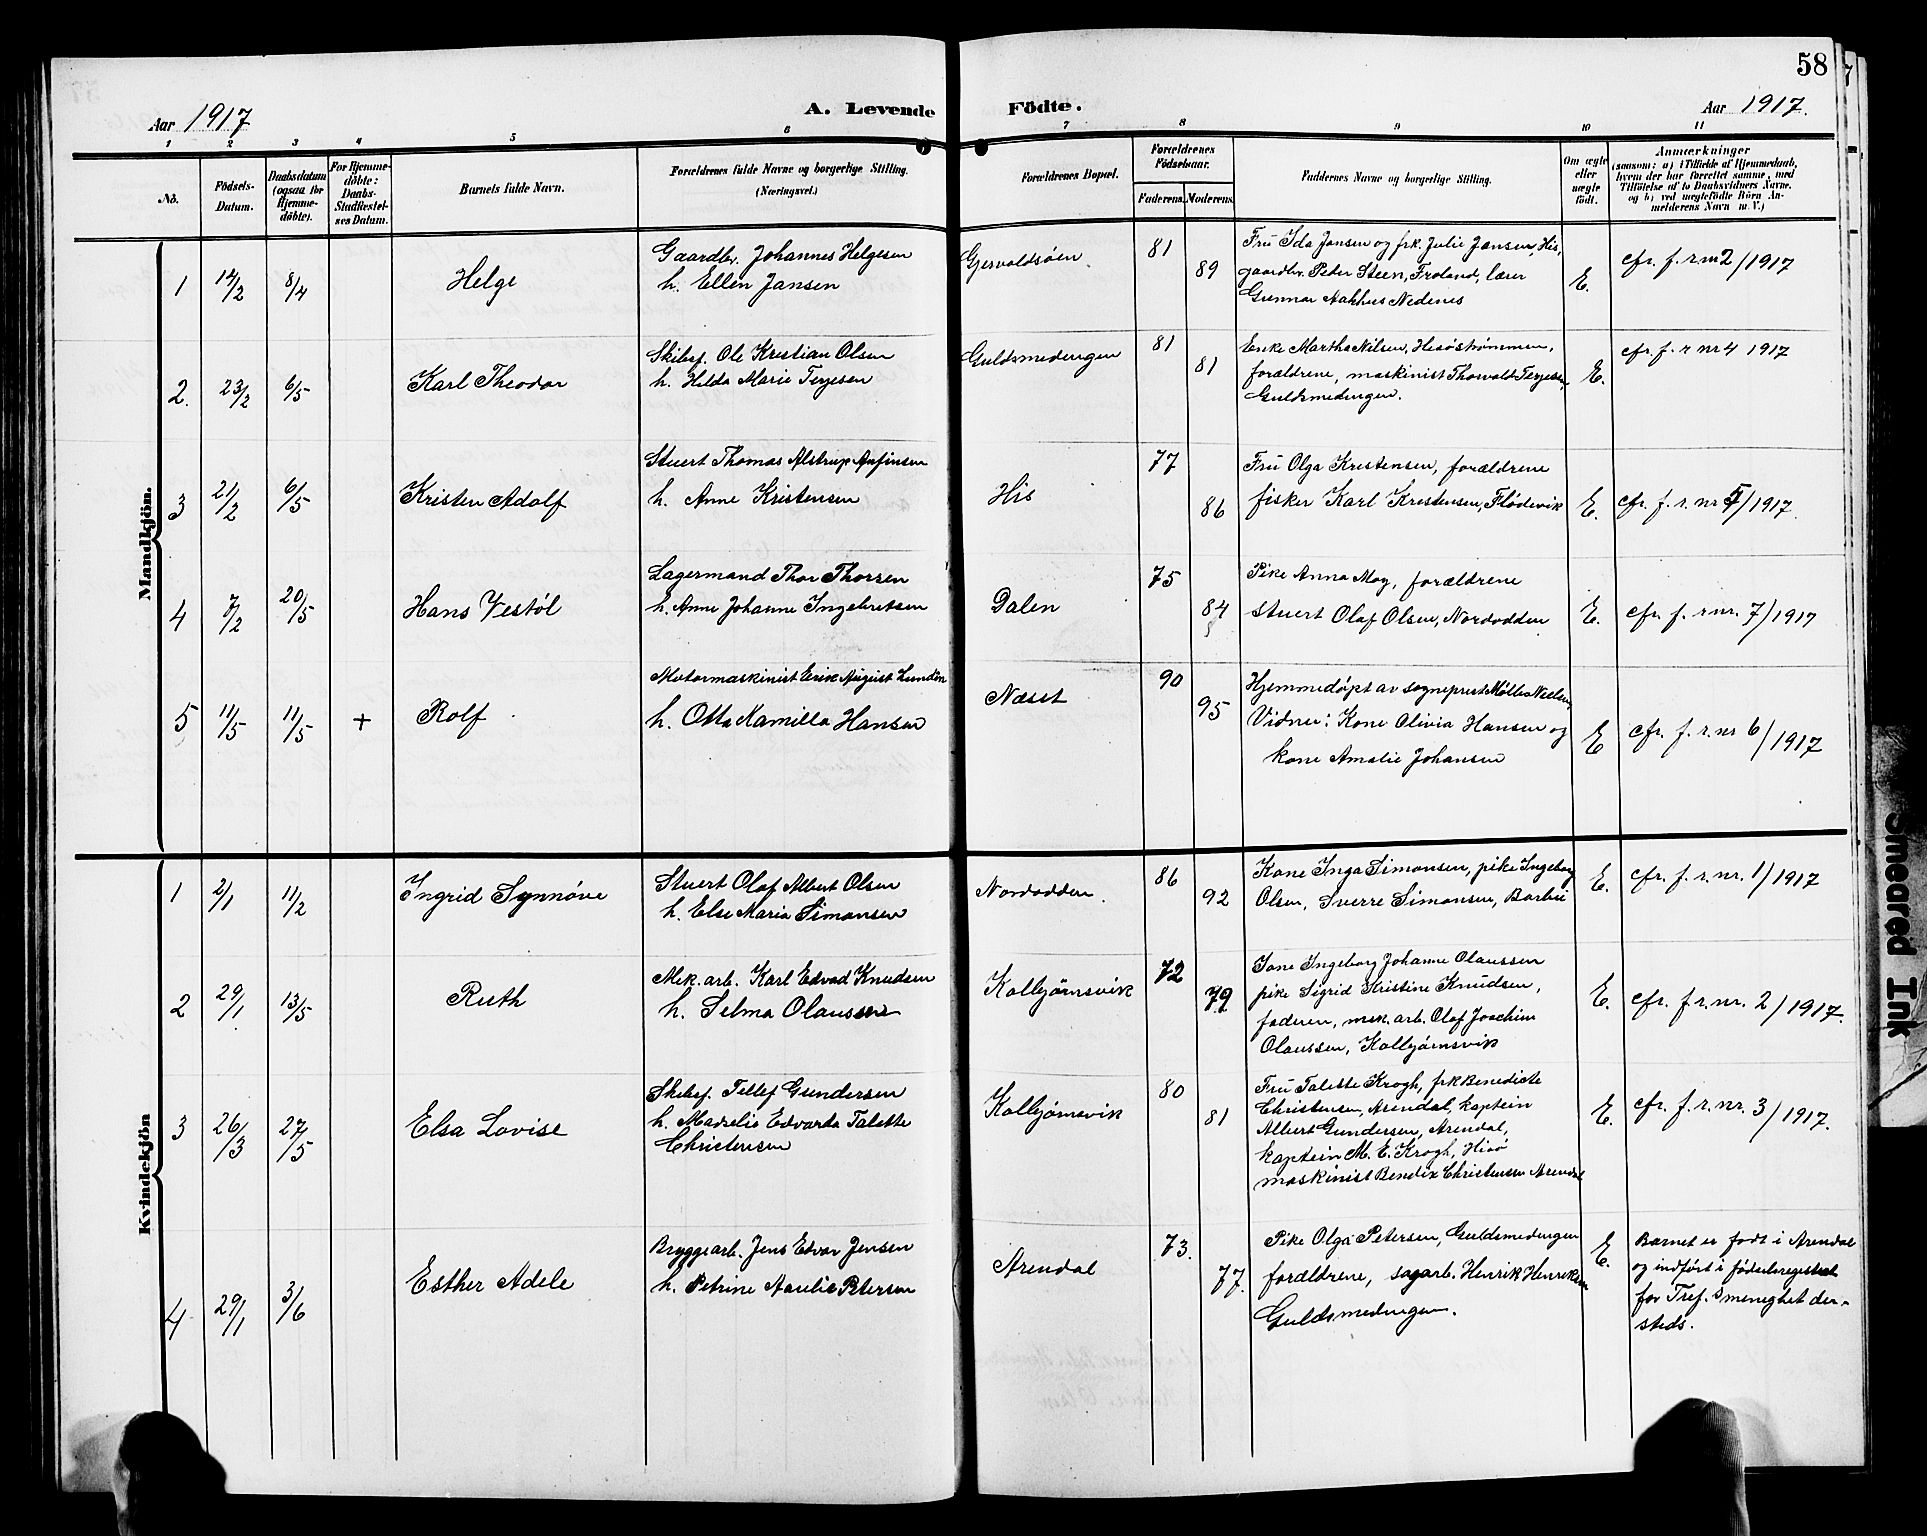 58
Aar 1917
A. Levende
Födte.
Aar 1917.
1 2 3 4 5 6 7 8 9 10 11
No.
Födsels-Datum.
Daabsdatum (ogsaa for Hjemme-döbte).
For Hjemme-döbte: Daabs-Stadfæstel-ses Datum.
Barnets fulde Navn.
Forældrenes fulde Navne og borgerlige Stilling. (Næringsvei.)
Forældrenes Bopæl.
Forældrenes Födselsaar.
Faderens. Moderens.
Faddernes Navne og borgerlige Stilling.
Om ægte eller uægte födt.
Anmærkninger
(saasom: a) i Tilfælde af Hjemmedaab, hvem der har forrettet samme, med Tilföielse af to Daabsvidners Navne, og b) ved uægtefödte Börn An-melderens Navn m. V.)
Mandkjön.
1 14/2 8/4 Helge
Gaardbr. Johannes Helgesen
h. Ellen Jansen
Gjervoldsöen 81 89
Fru Ida Jansen og frk. Julie Jansen, His,
gaardbr. Peder Steen, Froland, lærer
Gunnar Aakhus Nedenes
E. cfr. f. r nr 2/1917
2. 23/2 6/5 Karl Theodor
Skibsf. Ole Kristian Olsen
h. Hilda Marie Terjesen
Guldsmedengen 81 81
Enke Martha Nilsen, Hisöströmmen,
forældrene, maskinist Thorvald Terjesen,
Guldsmedengen.
E. cfr. f. r nr 4 1917
3 21/2 6/5 Kristen Adolf
Stuert Thomas Alstrup Anfinsen
h. Anne Kristensen
His 77 86
Fru Olga Kristensen, forældrene
fisker Karl Kristensen, Flödevik
E. cfr. f. r. nr 5/1917.
4 7/2 20/5 Hans Vestöl
Lagermand Thor Thorsen
h. Anne Johanne Ingebretsen
Dalen 75 84
Pike Anna Moy, forældrene
stuert Olaf Olsen, Nordodden
E. cfr. f. r nr. 7/1917
5 11/5 11/5 + Rolf
Motormaskinist Erik August Lundén
h. Otta Kamilla Hansen
Næset 90 95
Hjemmedöpt av sogneprest Möller Nielsen
Vidner: Kone Olivia Hansen og
kone Amalie Johansen
E cfr. f. r. nr 6/1917
Kvindekjön
1 2/1 11/2 Ingrid Synnöve
Stuert Olaf Albert Olsen
h. Else Maria Simonsen
Nordodden. 86 92
Kone Inga Simonsen, pike Ingeborg
Olsen, Sverre Simonsen, Barbu
E. cfr. f. r. nr. 1/1917
2 29/1 13/5 Ruth
Mek. arb. Karl Edvad Knudsen
h. Selma Olaussen
Kolbjörnsvik 72 79
Kone Ingeborg Johanne Olaussen
pike Sigrid Kristine Knudsen,
faderen, mek. arb. Olaf Joachim
Olaussen, Kolbjörnsvik
E. cfr. f r. nr. 2/1917.
3 26/3 27/5 Elsa Lovise
Skibsf. Tellef Gundersen
h. Marelie Edvarda Talette
Christensen
Kolbjörnsvik 80 81
Fru Talette Krogh, frk Benedicte
Christensen, Arendal, kaptein
Albert Gundersen, Arendal,
kaptein M. E. Krogh, Hisö
maskinist Bendix Christensen Arendal
E. cfr. f. r. nr. 3/1917.
4 29/1 3/6 Esther Adele
Bryggearb. Jens Edvar Jensen
h. Petrine Aurelie Petersen
Arendal 73. 77.
Pike Olga Petersen, Guldsmedengen
forældrene, sagarb. Henrik Henriksen
Guldsmedengen.
E. Barnet er födt i Arendal
og indfört i födselsregistret
for Tref. smenighet der-
steds.
Smeared Ink